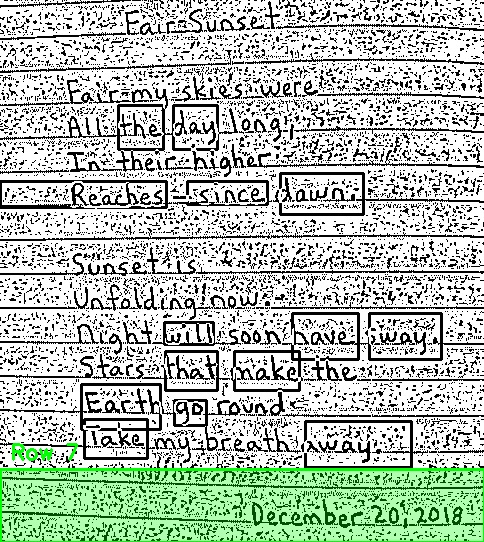 Fair Sunset
Fair my skies were
All the day long,
In their higher
Reaches - since dawn.
Sunset is
Unfolding now.
Night will soon have sway.
Stars that make the
Earth go round
Take my breath away.
Row 7
December 20, 2018